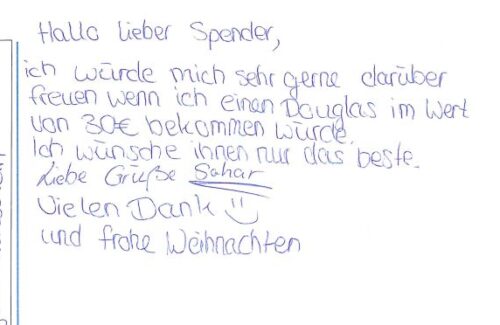 Hallo lieber Spender,
ich würde mich sehr gerne darüber
freuen wenn ich einen Douglas im Wert
von 30€ bekommen würde.
Ich wünsche ihnen nur das beste.
Liebe Grüße Sahar
Vielen Dank
und frohe Weihnachten